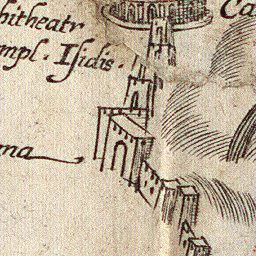 hitheatr
Ca
mpl. Isidis.
ma